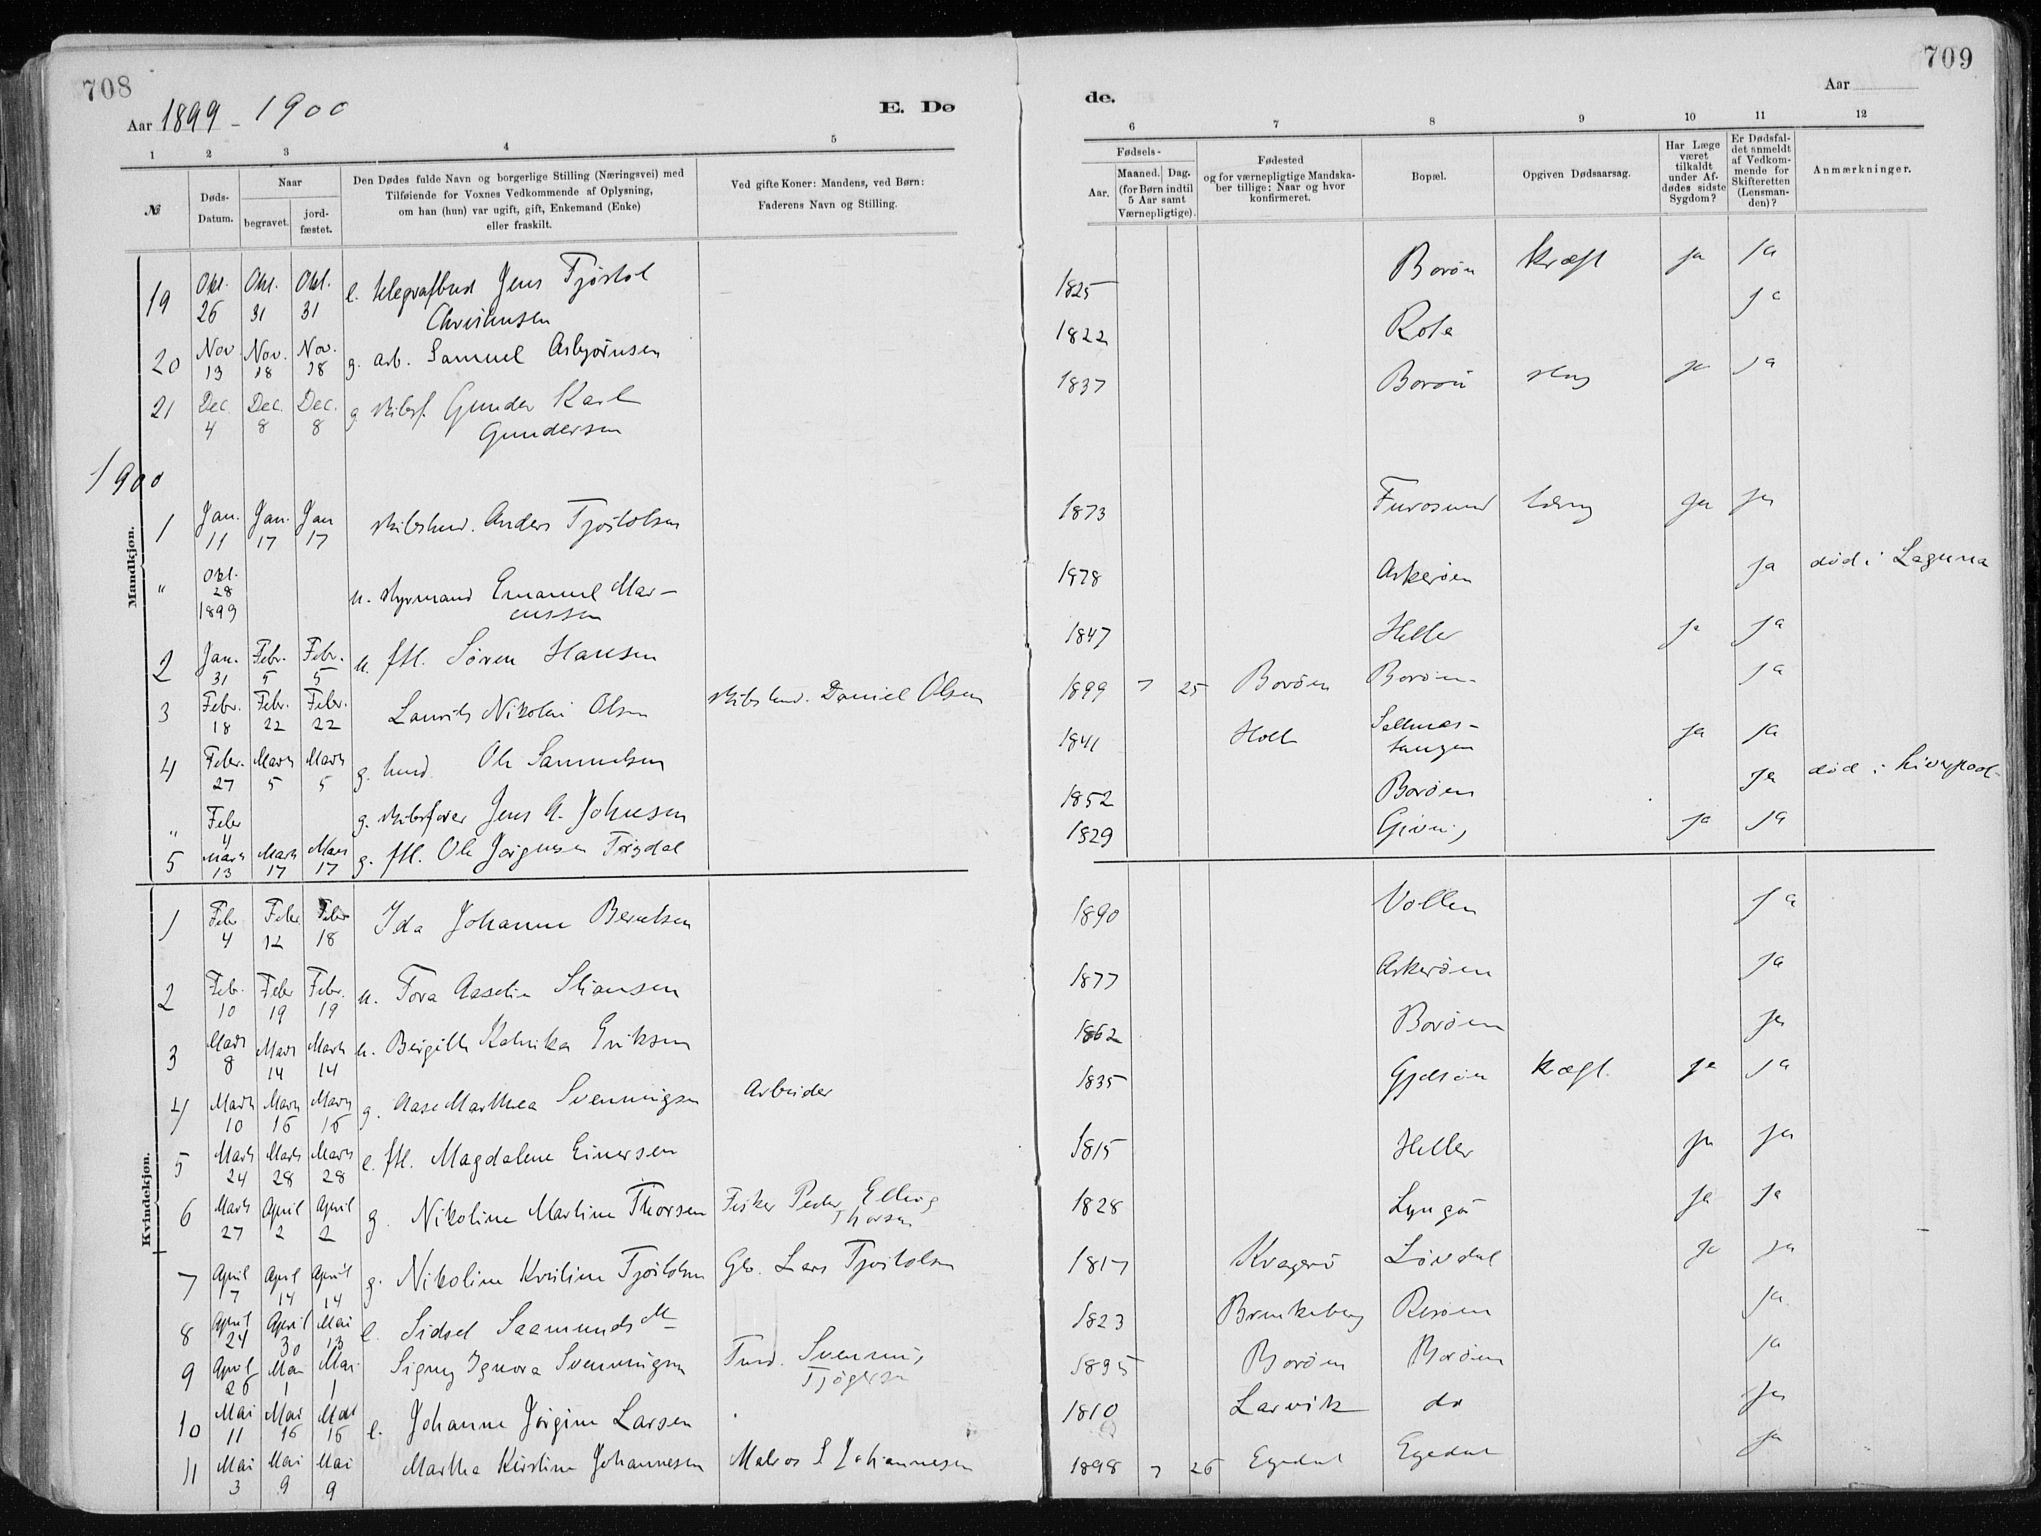 708
709
Aar 1899 - 1900
E. Dø
de.
Aar
1 2 3 4 5
6 7 8 9 10 11 12
№
Døds-Datum.
Naar
begravet.
jordfæstet.
Den Dødes fulde Navn og borgerlige Stilling (Næringsvei) med
Tilføiende for Voxnes Vedkommende af Oplysning,
om han (hun) var ugift, gift, Enkemand (Enke)
eller fraskilt.
Ved gifte Koner: Mandens, ved Børn:
Faderens Navn og Stilling.
Fødsels-
Aar.
Maaned.
Dag.
(for Børn indtil
5 Aar samt
Værnepligtige).
Fødested
og for værnepligtige Mandska-
ber tillige: Naar og hvor
konfirmeret.
Bopæl.
Opgiven Dødsaarsag.
Har Læge
været
tilkaldt
under Af-
dødes sidste
Sygdom?
Er Dødsfal-
det anmeldt
af Vedkom-
mende for
Skifteretten
(Lensman-
den)?
Anmærkninger.
Mandkjøn.
19 Okt. 26 Okt. 31 Okt. 31 e. telegrafbud Jens Tjøstol Christensen 1825 Borøn Kræft ja ja
20 Nov 13 Nov. 18 Nov. 18 g. arb. Samuel Asbjørnsen 1822 Rota ja
21 Dec. 4 Dec. 8 Dec. 8 g skibsf. Gunder Karl Gundersen 1837 Borøn slag ja ja
1900
1 Jan. 11 Jan. 17 Jan 17 skibstmd. Anders Tjøstolsen 1873 Furøsund tæring ja ja
" Okt. 28 1899 u. styrmand Emanuel Marcussen 1978 Askerøen ja død i Laguna
2 Jan. 31 Febr. 5 Febr. 5 u. ftl. Søren Hansen 1847 Heller ja ja
3 Febr. 18 Febr. 22 Febr. 22 Laurits Nikolai Olsen skibstmd. Daniel Olsen 1899 7 25 Borøen Borøen ja
4 Febr. 27 Marts 5 Marts 5 g. tmd. Ole Samuelsen 1841 Holt tangen ja ja
" Febr 4 g. skibsfører Jens A. Johnsen 1852 Borøen ja død i Liverpool
5 Marts 13 Marts 17 Mars 17 g. ftl. Ole Jørgensen 1829 Giving ja ja
Kvindekjøn.
1 Febr 4 Febr 12 Febr 18 Ida Johanne Berntsen 1890 Vollen ja
2 Feb. 10 Febr 19 Febr. 19 u. Tora Aaselie Stiansen 1877 Askerøen ja
3 Marts 8 Marts 14 Marts 14 u. Bergitte Katrika Eriksen 1862 Borøen ja
4 Marts 10 Marts 16 Marts 16 g. Aase Marthea Svenningsen Arbeider 1835 Gjelsøen kræft. ja ja
5 Marts 24 Marts 28 Marts 28 e. ftl. Magdalene Einersen 1815 Heller ja ja
6 Marts 27 April 2 April 2 g. Nikoline Martine Thorsen Fisker Peder Elling Thorsen 1828 Lyngør ja ja
7 April 7 April 14 April 14 g. Nikoline Kristine Tjøstolsen Gbr. Lars Tjøstolsen 1817 Kragerø Løvdal ja ja
8 April 24 April 30 Mai 13 e. Sidsel Saamundsdt 1823 Brunkeberg Risøen ja
9 April 26 Mai 1 Mai 1 Signy Ignora Svenningsen Tmd. Svenning Tjøgersen 1895 Borøen Borøen ja
10 Mai 11 Mai 16 Mai 16 e. Johanne Jørgine Larsen 1810 Larvik do ja
11 Mai 3 Mai 9 Mai 9 Martha Kirstine Johannesen Matros S Johannesen 1898 7 26 Egedal Egedal ja